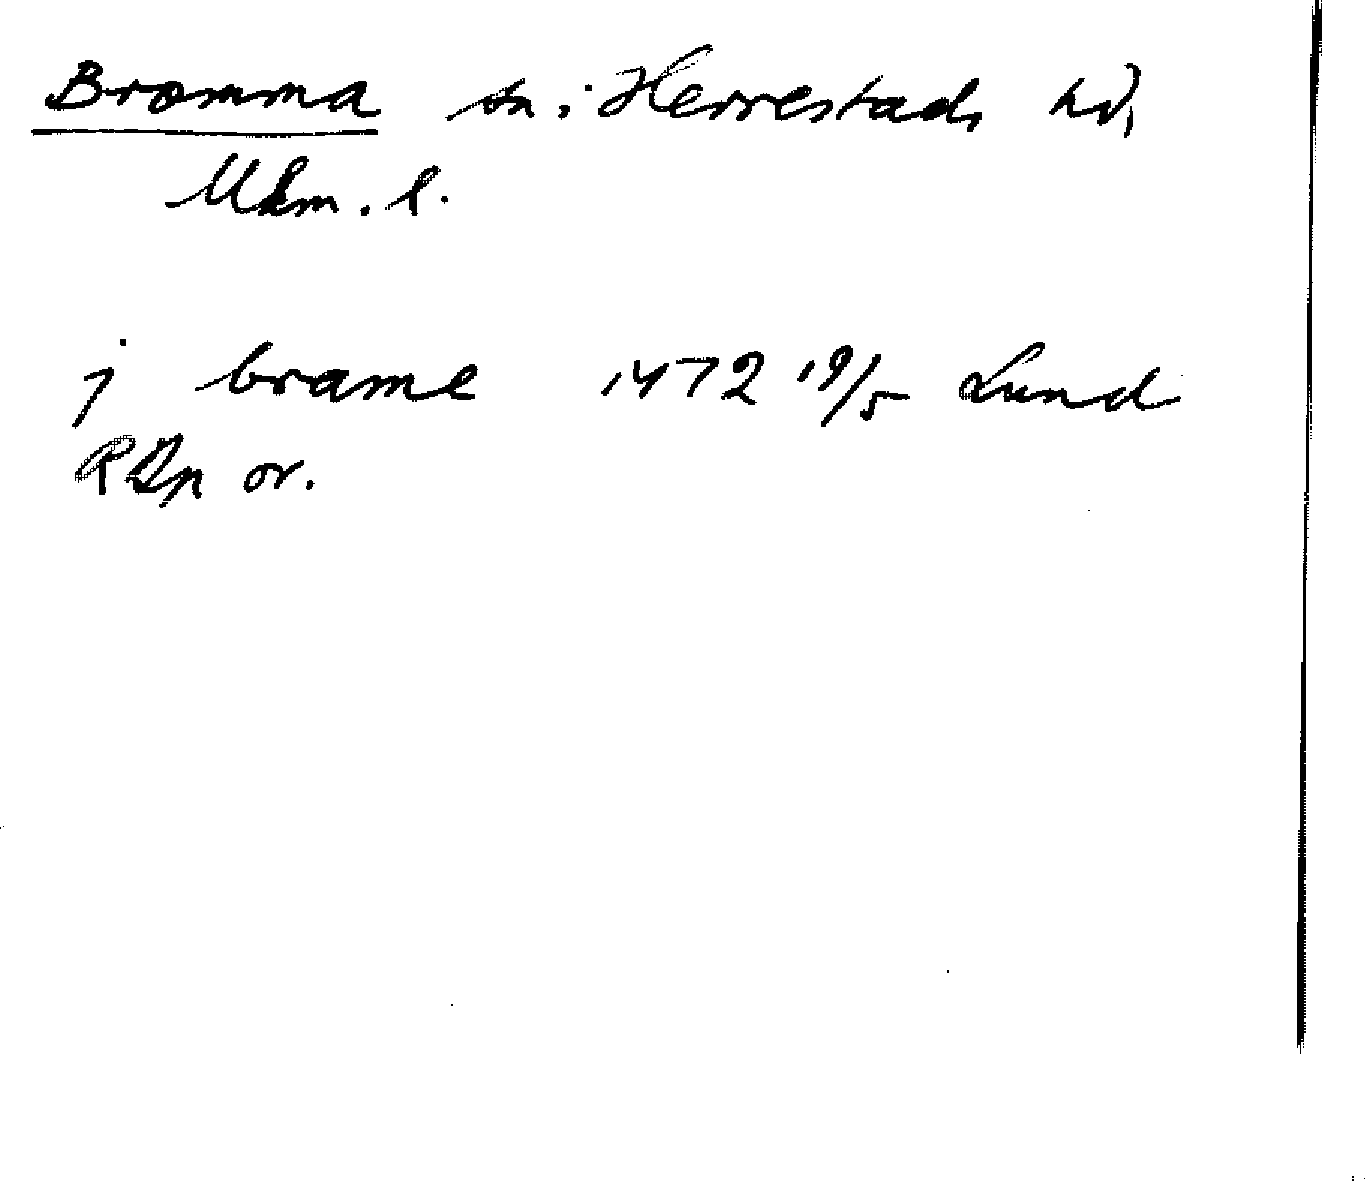 Bromma sn. i Herrestads hd,
Mhm. l.
j brame 1472 19/5 Lund
RDp or.